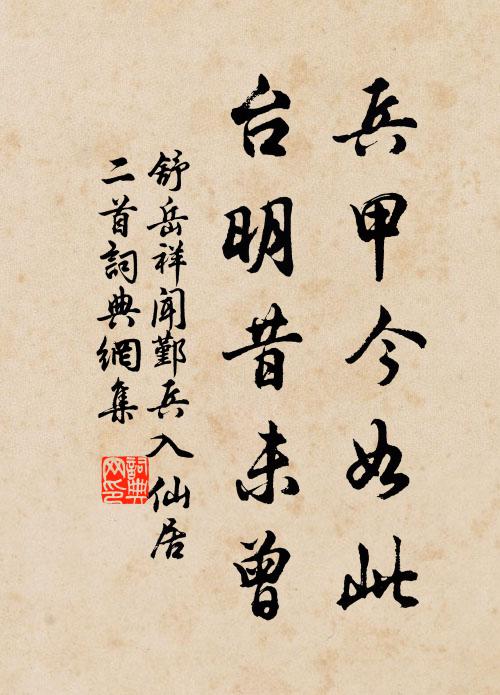 兵甲今如此
台明昔未曾
舒岳祥聞鄞兵入仙居
二首詞典網集
詞典網印